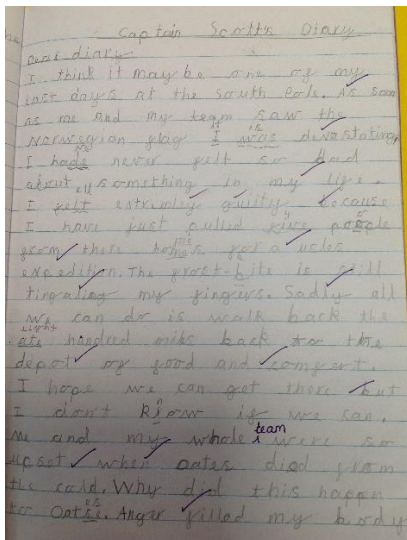 Captain Scott's Diary
Dear diary
I think it may be one of my
last days at the South Pole. As soon
as me and my team saw the
Norwegian flag I was devastating
I hads never felt so bad
about something in my life.
I felt extremley guilty because
I have just pulled five people
from there homes for a usles
expedition. The frost-bite is still
tingraling my fingers. Sadly all
we can do is walk back the
eight
ate hundred miles back to the
depot of food and comfort.
I hope we can get there but
I don't know if we can.
Me and my whole team were so
upset when Oates died from
the cold. Why did this happen
to Oatse. Anger filled my body